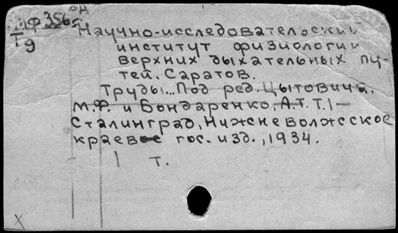 МФ 356
Т9
Научно-исследовательский
институт физиологии
верхних дыхательных пу-
тей. Саратов.
Труды... Под ред. Цытовича,
М.Ф. и Бондаренко, А.Т. Т.1-
Сталинград, Нижневолжсское
краевое гос. изд., 1934.
1 т.
X